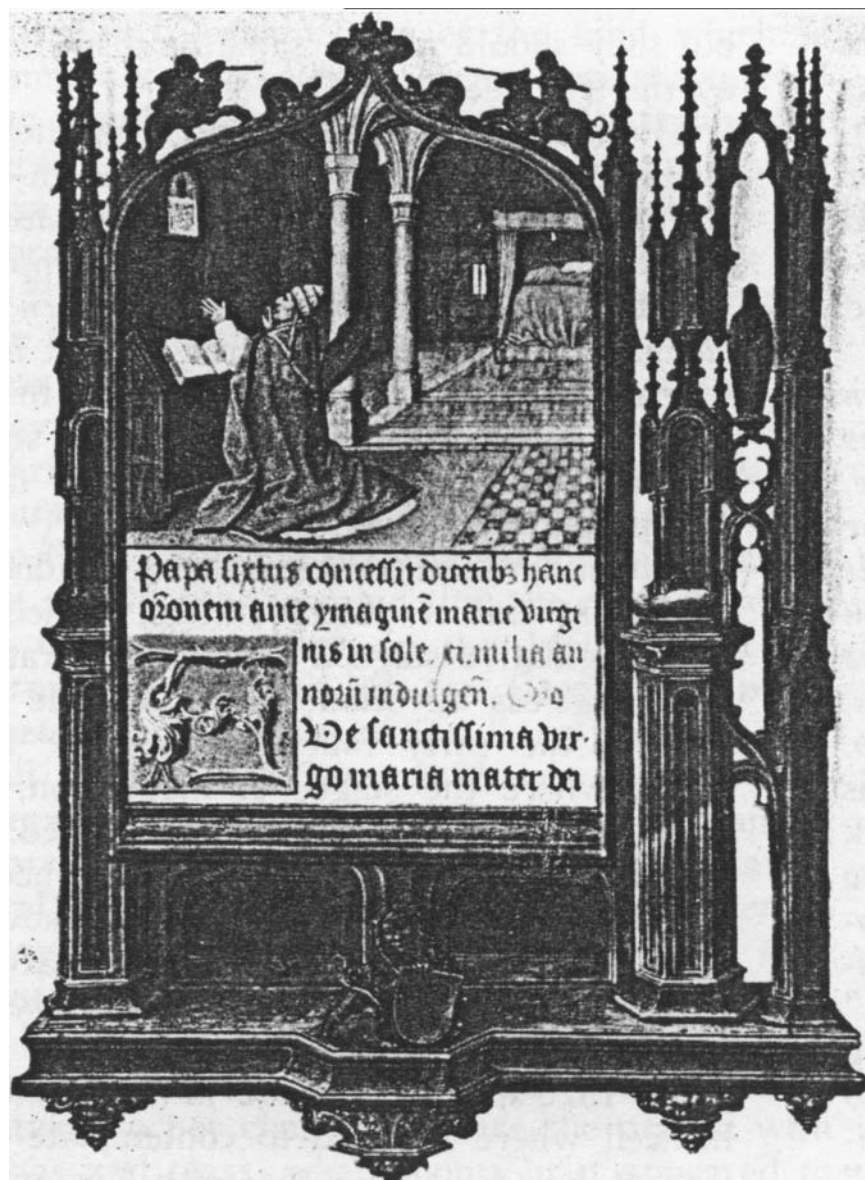 Papa sixtus concessit dicẽtibꝫ hanc
or̃onem ante ymaginẽ marie virgi
nis in sole. xi. milia an
norũ indulgen̄.
Ve sanctissima vir-
go maria mater dei